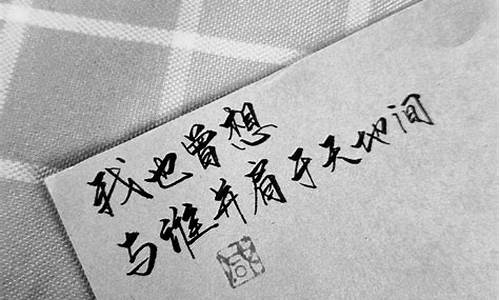 我也曾想
与谁并肩于天地间